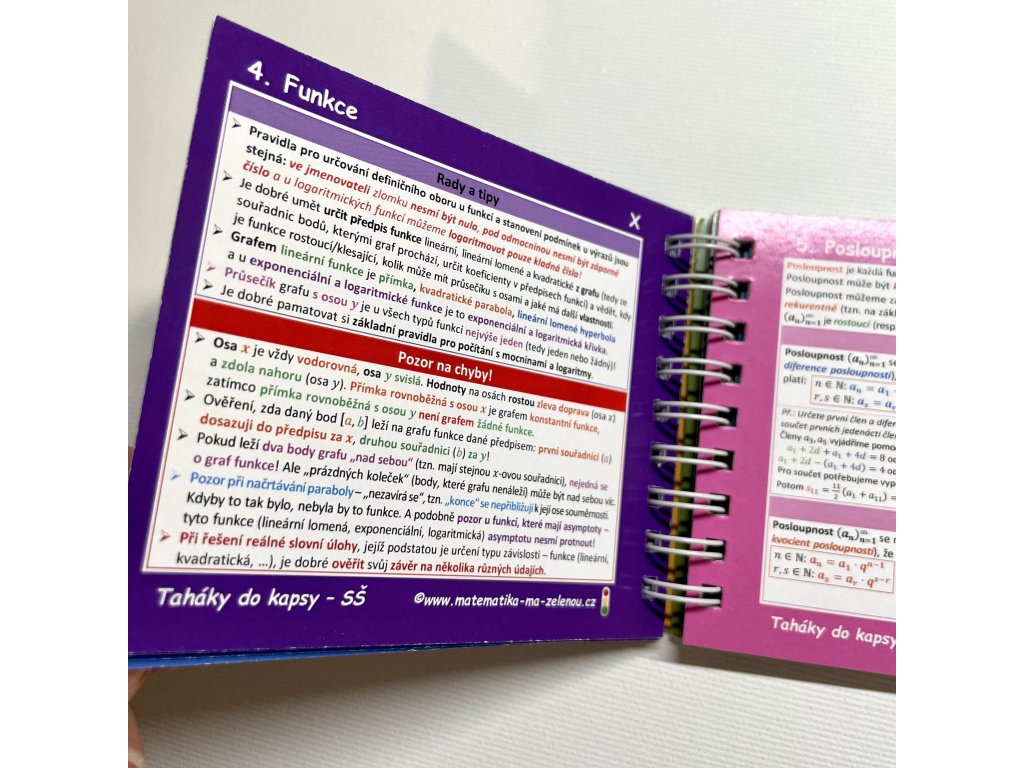 4. Funkce
X
Rady a tipy
➢ Pravidla pro určování definičního oboru u funkcí a stanovení podmínek u výrazů jsou
stejná: ve jmenovateli zlomku nesmí být nula, pod odmocninou nesmí být záporné
číslo a u logaritmických funkcí můžeme logaritmovat pouze kladná čísla!
➢ Je dobré umět určit předpis funkce lineární, lineární lomené a kvadratické z grafu (tedy ze
souřadnic bodů, kterými graf prochází, určit koeficienty v předpisech funkcí) a vědět, kdy
je funkce rostoucí/klesající, kolik může mít průsečíku s osami a jaké má další vlastnosti.
➢ Grafem lineární funkce je přímka, kvadratické parabola, lineární lomené hyperbola
a u exponenciální a logaritmické funkce je to exponenciální a logaritmická křivka.
➢ Průsečík grafu s osou y je u všech typů funkcí nejvýše jeden (tedy jeden nebo žádný)!
➢ Je dobré pamatovat si základní pravidla pro počítání s mocninami a logaritmy.
Pozor na chyby!
➢ Osa x je vždy vodorovná, osa y svislá. Hodnoty na osách rostou zleva doprava (osa x)
a zdola nahoru (osa y). Přímka rovnoběžná s osou x je grafem konstantní funkce,
zatímco přímka rovnoběžná s osou y není grafem žádné funkce.
➢ Ověření, zda daný bod [a, b] leží na grafu funkce dané předpisem: první souřadnici (a)
dosazuji do předpisu za x, druhou souřadnici (b) za y!
➢ Pokud leží dva body grafu „nad sebou“ (tzn. mají stejnou x-ovou souřadnici), nejedná se
o graf funkce! Ale „prázdných koleček“ (body, které grafu nenáleží) může být nad sebou víc.
➢ Pozor při načrtávání paraboly – „nezavírá se“, tzn. „konce“ se nepřibližují k její ose souměrnosti.
Kdyby to tak bylo, nebyla by to funkce. A podobně pozor u funkcí, které mají asymptoty –
tyto funkce (lineární lomená, exponenciální, logaritmická) asymptotu nesmí protnout!
➢ Při řešení reálné slovní úlohy, jejíž podstatou je určení typu závislosti – funkce (lineární,
kvadratická, …), je dobré ověřit svůj závěr na několika různých údajích.
Taháky do kapsy – SŠ
©www.matematika-ma-zelenou.cz
5. Posloupn
Posloupnost je každá fu
Posloupnost může být
Posloupnosti můžeme za
rekurentně (tzn. na zákl
(aₙ)ₙ₌₁^∞ je rostoucí (resp.
Posloupnost (aₙ)ₙ₌₁^∞ se
diference posloupnosti),
platí: n ∈ ℕ: aₙ = a₁
r, s ∈ ℕ: aₛ = aᵣ
Př.: Určete první člen a difer
součet prvních jedenácti člen
Členy a₃, a₅ vyjádříme pomoc
a₁ + 2d + a₁ + 4d = 8 o
a₁ + 2d − (a₁ + 4d) = 4 o
Pro součet potřebujeme vyp
Potom s₁₁ = 11/2 (a₁ + a₁₁) =
Posloupnost (aₙ)ₙ₌₁^∞ se n
kvocient posloupnosti), že
n ∈ ℕ: aₙ = a₁ · qⁿ⁻¹
r, s ∈ ℕ: aₛ = aᵣ · qˢ⁻ʳ
Taháky do kapsy